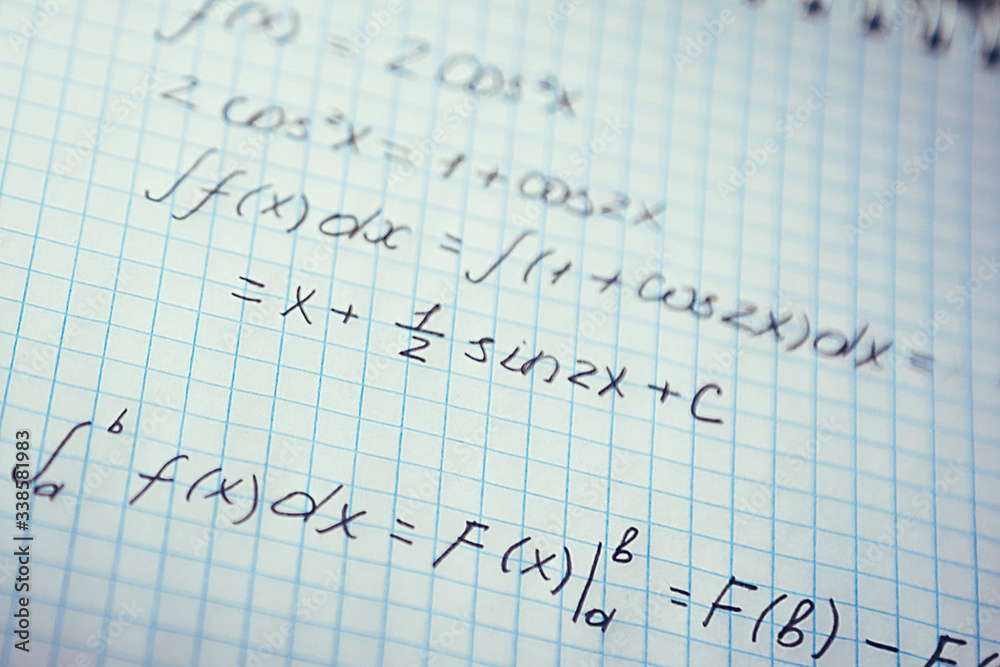 f(x) = 2 cos²x
2 cos²x = 1 + cos2x
∫f(x)dx = ∫(1 + cos2x)dx =
= x + 1/2 sin2x + C
∫ₐᵇ f(x)dx = F(x)|ₐᵇ = F(b) - F(
Adobe Stock | #338581983